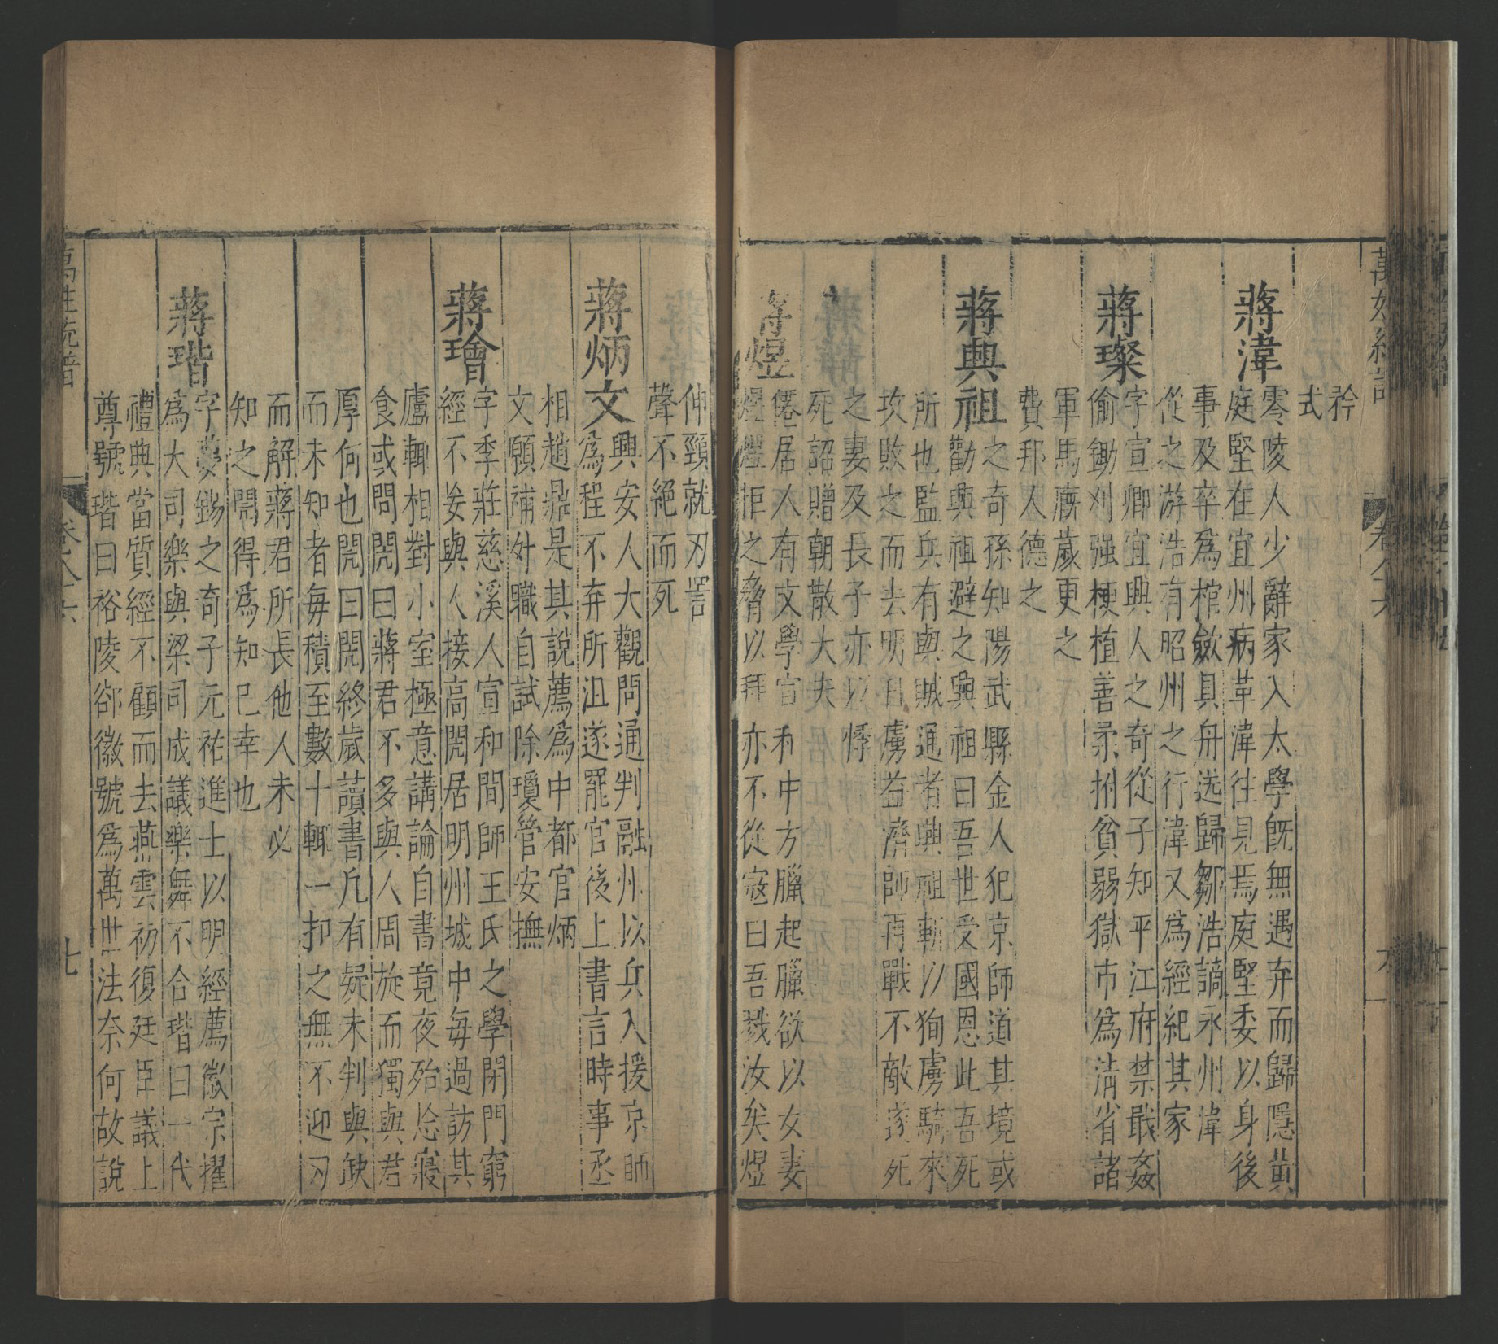 矜
式
蔣湋
零陵人少辭家入太學既無遇弃而歸隱黃
庭堅在宜州病革湋往見焉庭堅委以身後
事及卒爲棺斂具舟送歸鄒浩謫永州湋
從之游浩有昭州之行湋又爲經紀其家
蔣璨
字宣卿宜興人之奇從子知平江府禁戢姦
偷鋤刈强梗植善柔拊貧弱獄市爲清省諸
軍馬廐歲更之
費邦人德之
蔣興祖
之奇孫知陽武縣金人犯京師道其境或
勸興祖避之興祖曰吾世受國恩此吾死
所也監兵有與賊通者興祖斬以狥虜騎來
攻敗之而去明日虜益濟師再戰不敵遂死
之妻及長子亦以悸
死詔贈朝散大夫
蔣煜
僊居人有文學宣和中方臘起臘欲以女妻
煜煜拒之脅以拜亦不從寇曰吾戮汝矣煜
伸頸就刃詈
聲不絕而死
蔣炳文
興安人大觀間通判融州以兵入援京師
爲程不弃所沮遂罷官後上書言時事丞
相趙鼎是其說薦爲中都官炳
文願補外職自試除瓊管安撫
蔣璯
字季莊慈溪人宣和間師王氏之學閉門窮
經不妄與人接高閌居明州城中每過訪其
廬輒相對小室極意講論自書竟夜殆忘寢
食或問閌曰蔣君不多與人周旋而獨與君
厚何也閌曰閌終歲讀書凡有疑未判與缺
而未知者每積至數十輒一扣之無不迎刃
而解蔣君所長他人未必
知之閌得爲知已幸也
蔣瑎
字夢錫之奇子元祐進士以明經薦徽宗擢
爲大司樂與梁同成議樂舞不合瑎曰一代
禮典當質經不顧而去燕雲初復廷臣議上
尊號瑎曰裕陵郤徽號爲萬世法奈何故說
萬姓統普
卷八十六
七